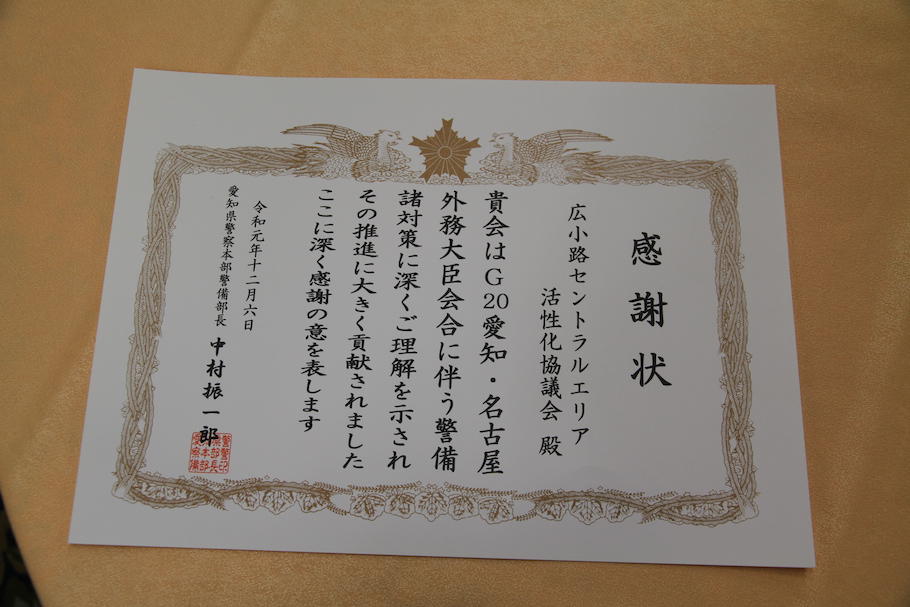 感謝状
広小路セントラルエリア
活性化協議会 殿
貴会はG20愛知・名古屋
外務大臣会合に伴う警備
諸対策に深くご理解を示され
その推進に大きく貢献されました
ここに深く感謝の意を表します
令和元年十二月六日
愛知県警察本部警備部長 中村振一郎